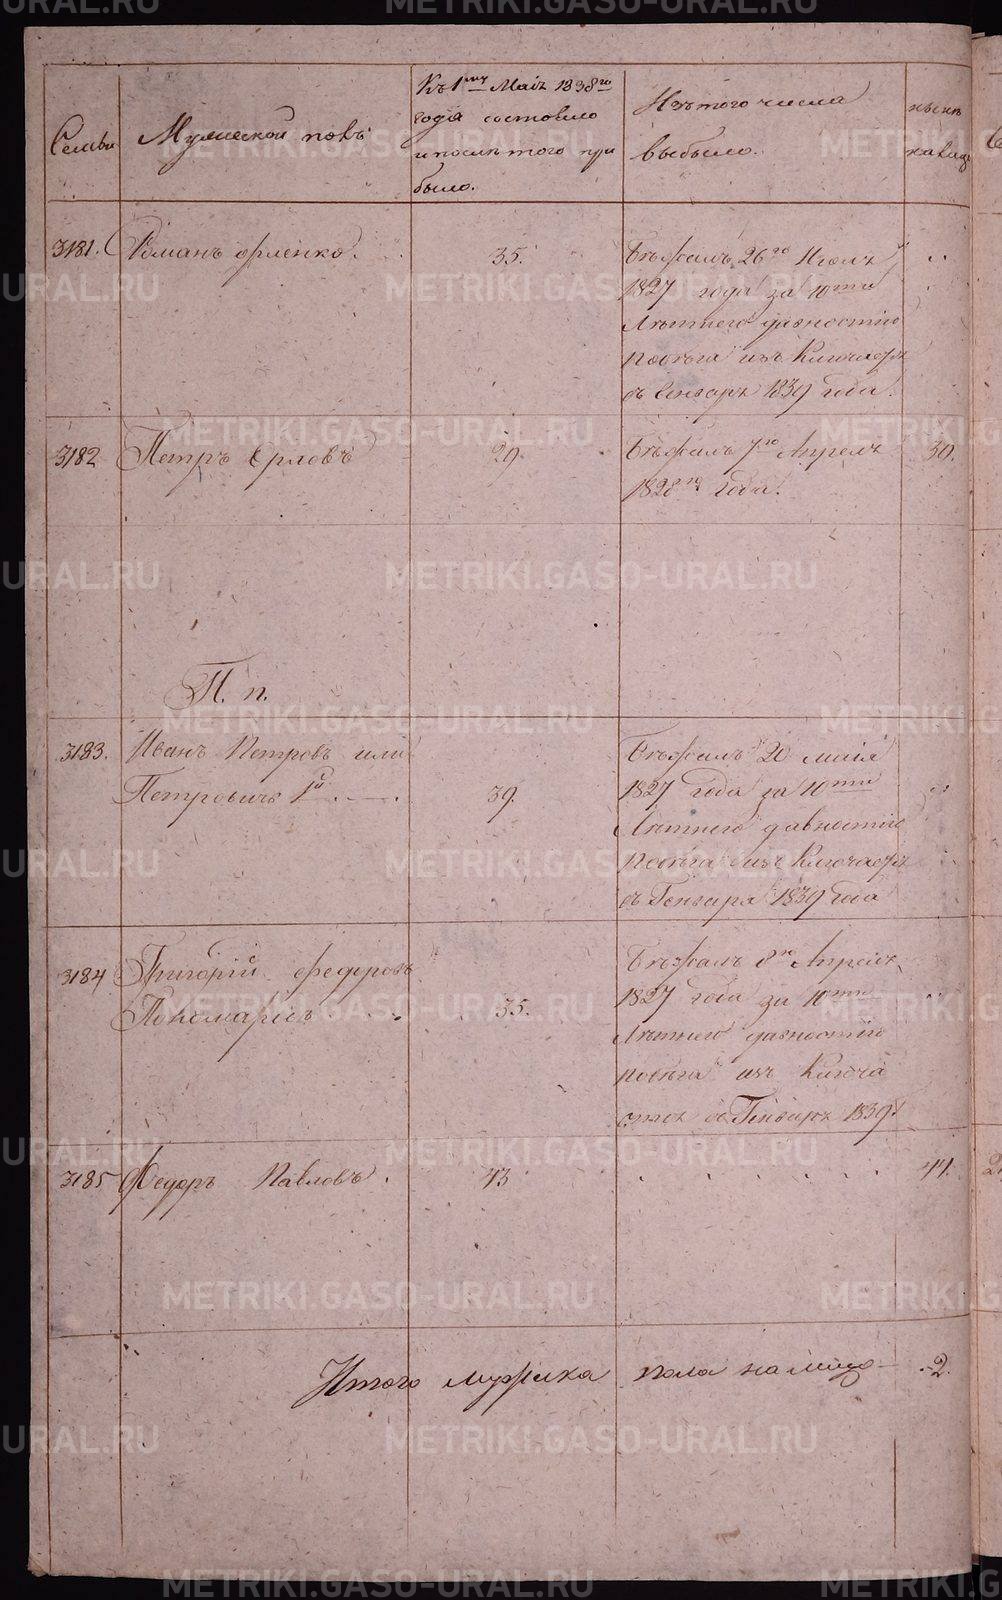 Семьи
Мужеской полъ
Къ 1му Маія 1838го
года состояло
и послѣ того при
было.
Изъ того числа
выбыло.
нынѣ
на лицо
3181. Романъ Орленко. 35. Бѣжалъ 26го Іюля
1827 года за 10ти
Лѣтнею давностію
побѣга изъ
съ Генваря 1839 года.
3182 Петръ Орловъ 29. Бѣжалъ 7го Апреля 30.
1828го года.
П. п.
3183. Иванъ Петровъ или Бѣжалъ 20 маія
Петровичь 1й 39. 1827 года за 10ти
Лѣтнею давностію
побѣга изъ
съ Генваря 1839 года
3184 Григорій Федоровъ Бѣжалъ 8го Апреля
Пономарiовъ 35. 1827 года за 10ти
Лѣтнею давностію
побѣга изъ Ключа
съ Генваря 1839
3185 Федоръ Павловъ. 43 44. 2
Итого мужска пола на лицо 2.
METRIKI.GASO-URAL.RU